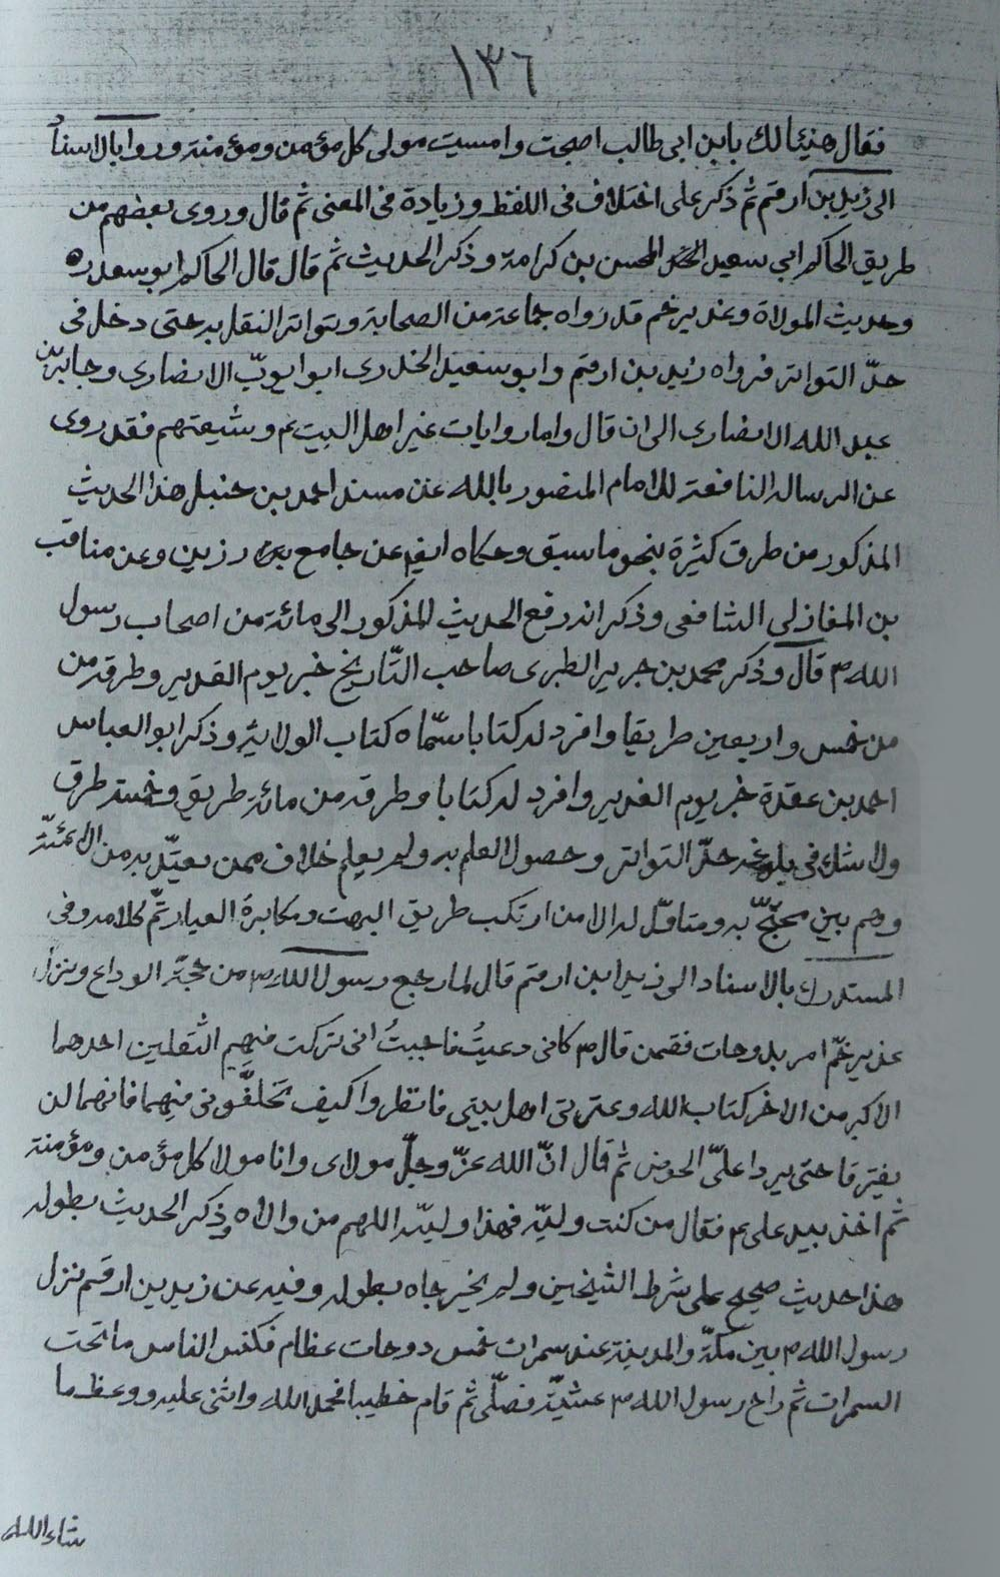 ١٣٦
فقال هنيئا لك يابن ابى طالب اصبحت وامسيت مولى كل مؤمن ومؤمنة وروا بالاسناد
الى زيد بن ارقم ثم ذكر على اختلاف فى اللفظ وزيادة فى المعنى ثم قال وروى بعضهم من
طريق الحاكم ابى سعيد المحسن بن كرامة وذكر الحديث ثم قال قال الحاكم ابو سعد ره
وحديث المولاة وغدير خم قد رواه جماعة من الصحابة وتواتر النقل به حتى دخل فى
حدّ التواتر فرواه زيد بن ارقم وابو سعيد الخدرى ابو ايوبّ الانصارى وجابر بن
عبد الله الانصارى الى ان قال واما روايات غير اهل البيت ع وشيعتهم فقد روى
عن الرسالة النافعة للامام المنصور بالله عن مسند احمد بن حنبل هذا الحديث
المذكور من طرق كثيرة بنحو ما سبق وحكاه ايضا عن جامع رزين وعن مناقب
بن المغازلى الشافعى وذكر انه رفع الحديث المذكور الى مائة من اصحاب رسول
الله ص قال وذكر محمد بن جرير الطبرى صاحب التّاريخ خبر يوم الغدير وطرقه من
من خمس واربعين طريقا وافرد له كتابا سمّاه كتاب الولاية وذكر ابو العباس
احمد بن عقدة خبر يوم الغدير وافرد له كتابا وطرقه من مائة طريق وخمسة طرق
ولا شك فى بلوغه حدّ التواتر وحصول العلم به ولم يعلم خلاف ممن يعتدّ به من الائمّة
وهم بين محتجّ به ومتاوّل له الا من ارتكب طريق البهت ومكابرة العيار تمّ كلامه وفى
المستدرك بالاسناد الى زيد ابن ارقم قال لما رجع رسول الله ص من حجّة الوداع ونزل
غدير خمّ امر بدوحات فقمن قال ص كانى دعيتُ فاجبتُ انى تركت فيهم الثقلين احدهما
الاكبر من الاخر كتاب الله وعترتى اهل بيتى فانظروا كيف تخلفّونى فيهما فانهما لن
يفترقا حتى يردا علىّ الحوض ثم قال انّ الله عزّ وجلّ مولاى وانا مولا كل مؤمن ومؤمنة
ثم اخذ بيد على ع فقال من كنت وليّه فهذا وليّه اللهم من والاه وذكر الحديث بطوله
هذا حديث صحيح على شرط الشيخين ولم يخرجاه بطوله وفيه عن زيد بن ارقم نزل
رسول الله ص بين مكّة والمدينة عند سمرات خمس دوحات عظام فكنس الناس ما تحت
السمرات ثم راح رسول الله ص عشيّة فصلّى ثم قام خطيبا فحمد الله واثنى عليه ووعظ ما
شاء الله